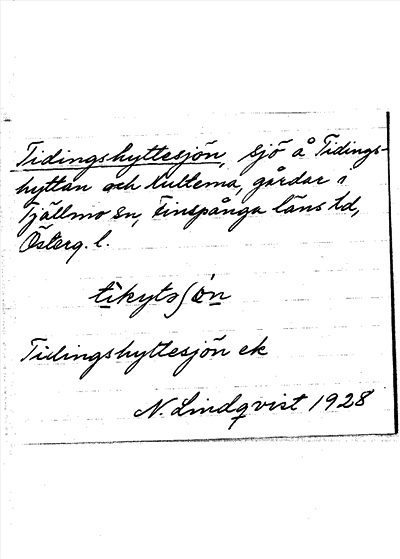 Tidingshyttesjön, sjö å Tidings-
hyttan och Kulterna, gårdar i
Tjällmo sn, Finspånga läns td,
Österg. l.
Tidingshyttesjön ek
N. Lindqvist 1928